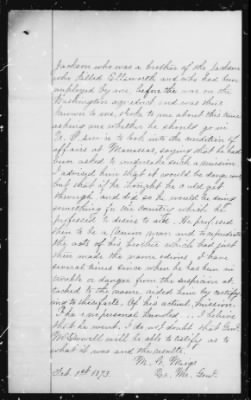 Jackson who was a brother of the Jackson
who killed Ellsworth and who had been
employed by me before the war on the
Washington aqueduct and was thus
known to me, spoke to me about this time
asking me whether he should go in
to look into the condition of
affairs at Manassas, saying that he had
been asked to undertake such a mission
I advised him that it would be dangerous
but that if he thought he could get
through and back he would be doing
something for his country which he
professed to desire to do. He professed
then to be a Union man and to repudiate
the acts of his brother which had just
then made the name odious. I have
several times since when he has been in
trouble or danger from the suspicion at-
tached to the name aided him by certify-
ing to these facts. Of his actual mission
I have no personal knowledge. I believe
that he went. I do not doubt that Genl
McDowell will be able to testify as to
what it was and the results.
M. C. Meigs
Feb. 1873. Qr. Mr. Genl.